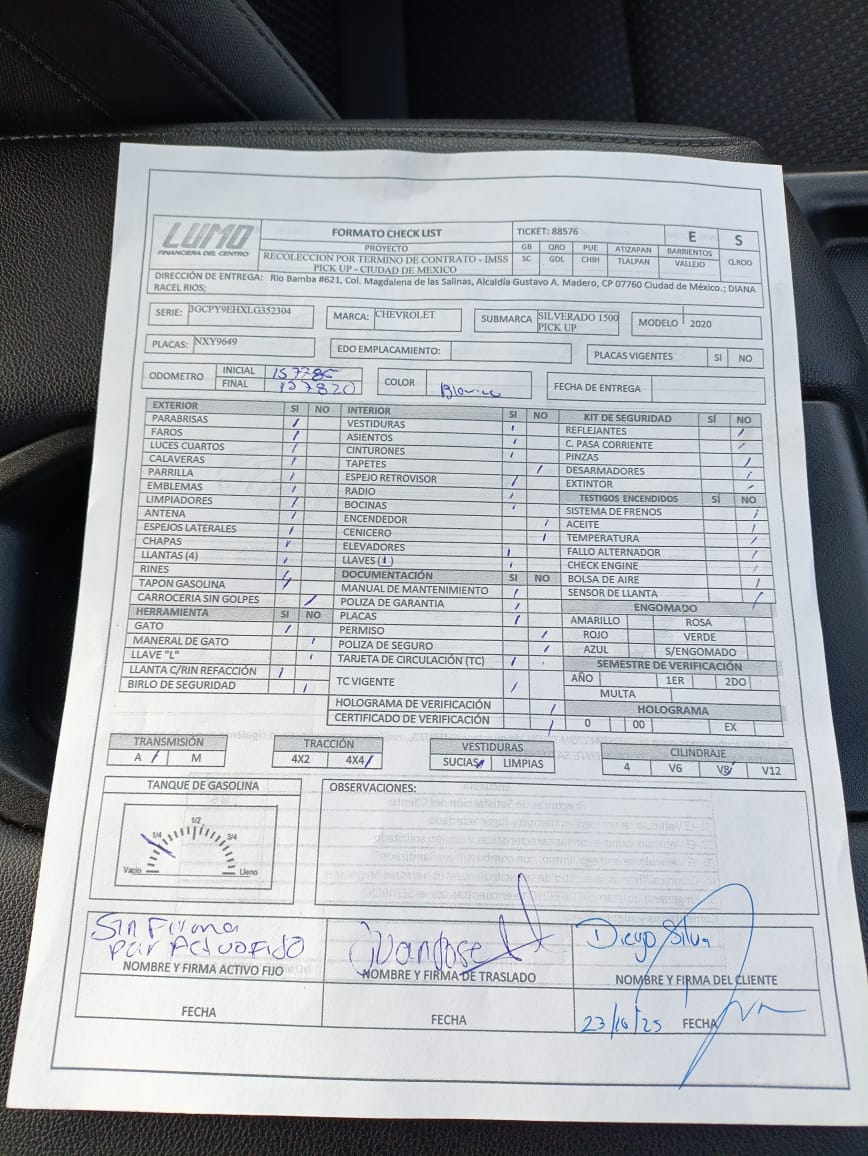 LUMO
FINANCIERA DEL CENTRO
FORMATO CHECK LIST
TICKET: 88576
E
S
PROYECTO
RECOLECCION POR TERMINO DE CONTRATO - IMSS
PICK UP - CIUDAD DE MEXICO
GB QRO PUE ATIZAPAN BARRIENTOS
SC GDL CHIH TLALPAN VALLEJO Q.ROO
DIRECCIÓN DE ENTREGA: Rio Bamba #621, Col. Magdalena de las Salinas, Alcaldía Gustavo A. Madero, CP 07760 Ciudad de México.; DIANA
RACEL RIOS;
SERIE: 3GCPY9EHXLG352304
MARCA: CHEVROLET
SUBMARCA SILVERADO 1500
PICK UP
MODELO 2020
PLACAS: NXY9649
EDO EMPLACAMIENTO:
PLACAS VIGENTES SI NO
ODOMETRO
INICIAL
FINAL 157820
COLOR Blanco
FECHA DE ENTREGA
EXTERIOR SI NO
PARABRISAS /
FAROS /
LUCES CUARTOS /
CALAVERAS /
PARRILLA /
EMBLEMAS /
LIMPIADORES /
ANTENA /
ESPEJOS LATERALES /
CHAPAS /
LLANTAS (4) /
RINES /
TAPON GASOLINA /
CARROCERIA SIN GOLPES /
HERRAMIENTA SI NO
GATO /
MANERAL DE GATO /
LLAVE "L" /
LLANTA C/RIN REFACCIÓN /
BIRLO DE SEGURIDAD /
INTERIOR SI NO
VESTIDURAS /
ASIENTOS /
CINTURONES /
TAPETES /
ESPEJO RETROVISOR /
RADIO /
BOCINAS /
ENCENDEDOR /
CENICERO /
ELEVADORES /
LLAVES (1) /
DOCUMENTACIÓN SI NO
MANUAL DE MANTENIMIENTO /
POLIZA DE GARANTIA /
PLACAS /
PERMISO /
POLIZA DE SEGURO /
TARJETA DE CIRCULACIÓN (TC) /
TC VIGENTE /
HOLOGRAMA DE VERIFICACIÓN /
CERTIFICADO DE VERIFICACIÓN /
KIT DE SEGURIDAD SÍ NO
REFLEJANTES /
C. PASA CORRIENTE /
PINZAS /
DESARMADORES /
EXTINTOR /
TESTIGOS ENCENDIDOS SÍ NO
SISTEMA DE FRENOS /
ACEITE /
TEMPERATURA /
FALLO ALTERNADOR /
CHECK ENGINE /
BOLSA DE AIRE /
SENSOR DE LLANTA /
ENGOMADO
AMARILLO ROSA
ROJO VERDE
AZUL S/ENGOMADO
SEMESTRE DE VERIFICACIÓN
AÑO 1ER 2DO
MULTA
HOLOGRAMA
0 00 EX
TRANSMISIÓN
A / M
TRACCIÓN
4X2 4X4 /
VESTIDURAS
SUCIAS / LIMPIAS
CILINDRAJE
4 V6 V8 / V12
TANQUE DE GASOLINA
1/4 1/2 3/4
Vacio Lleno
OBSERVACIONES:
Sin Firma
por Activo Fijo
NOMBRE Y FIRMA ACTIVO FIJO
Juan Jose
NOMBRE Y FIRMA DE TRASLADO
Diego Silva
NOMBRE Y FIRMA DEL CLIENTE
FECHA
FECHA
23/10/25 FECHA